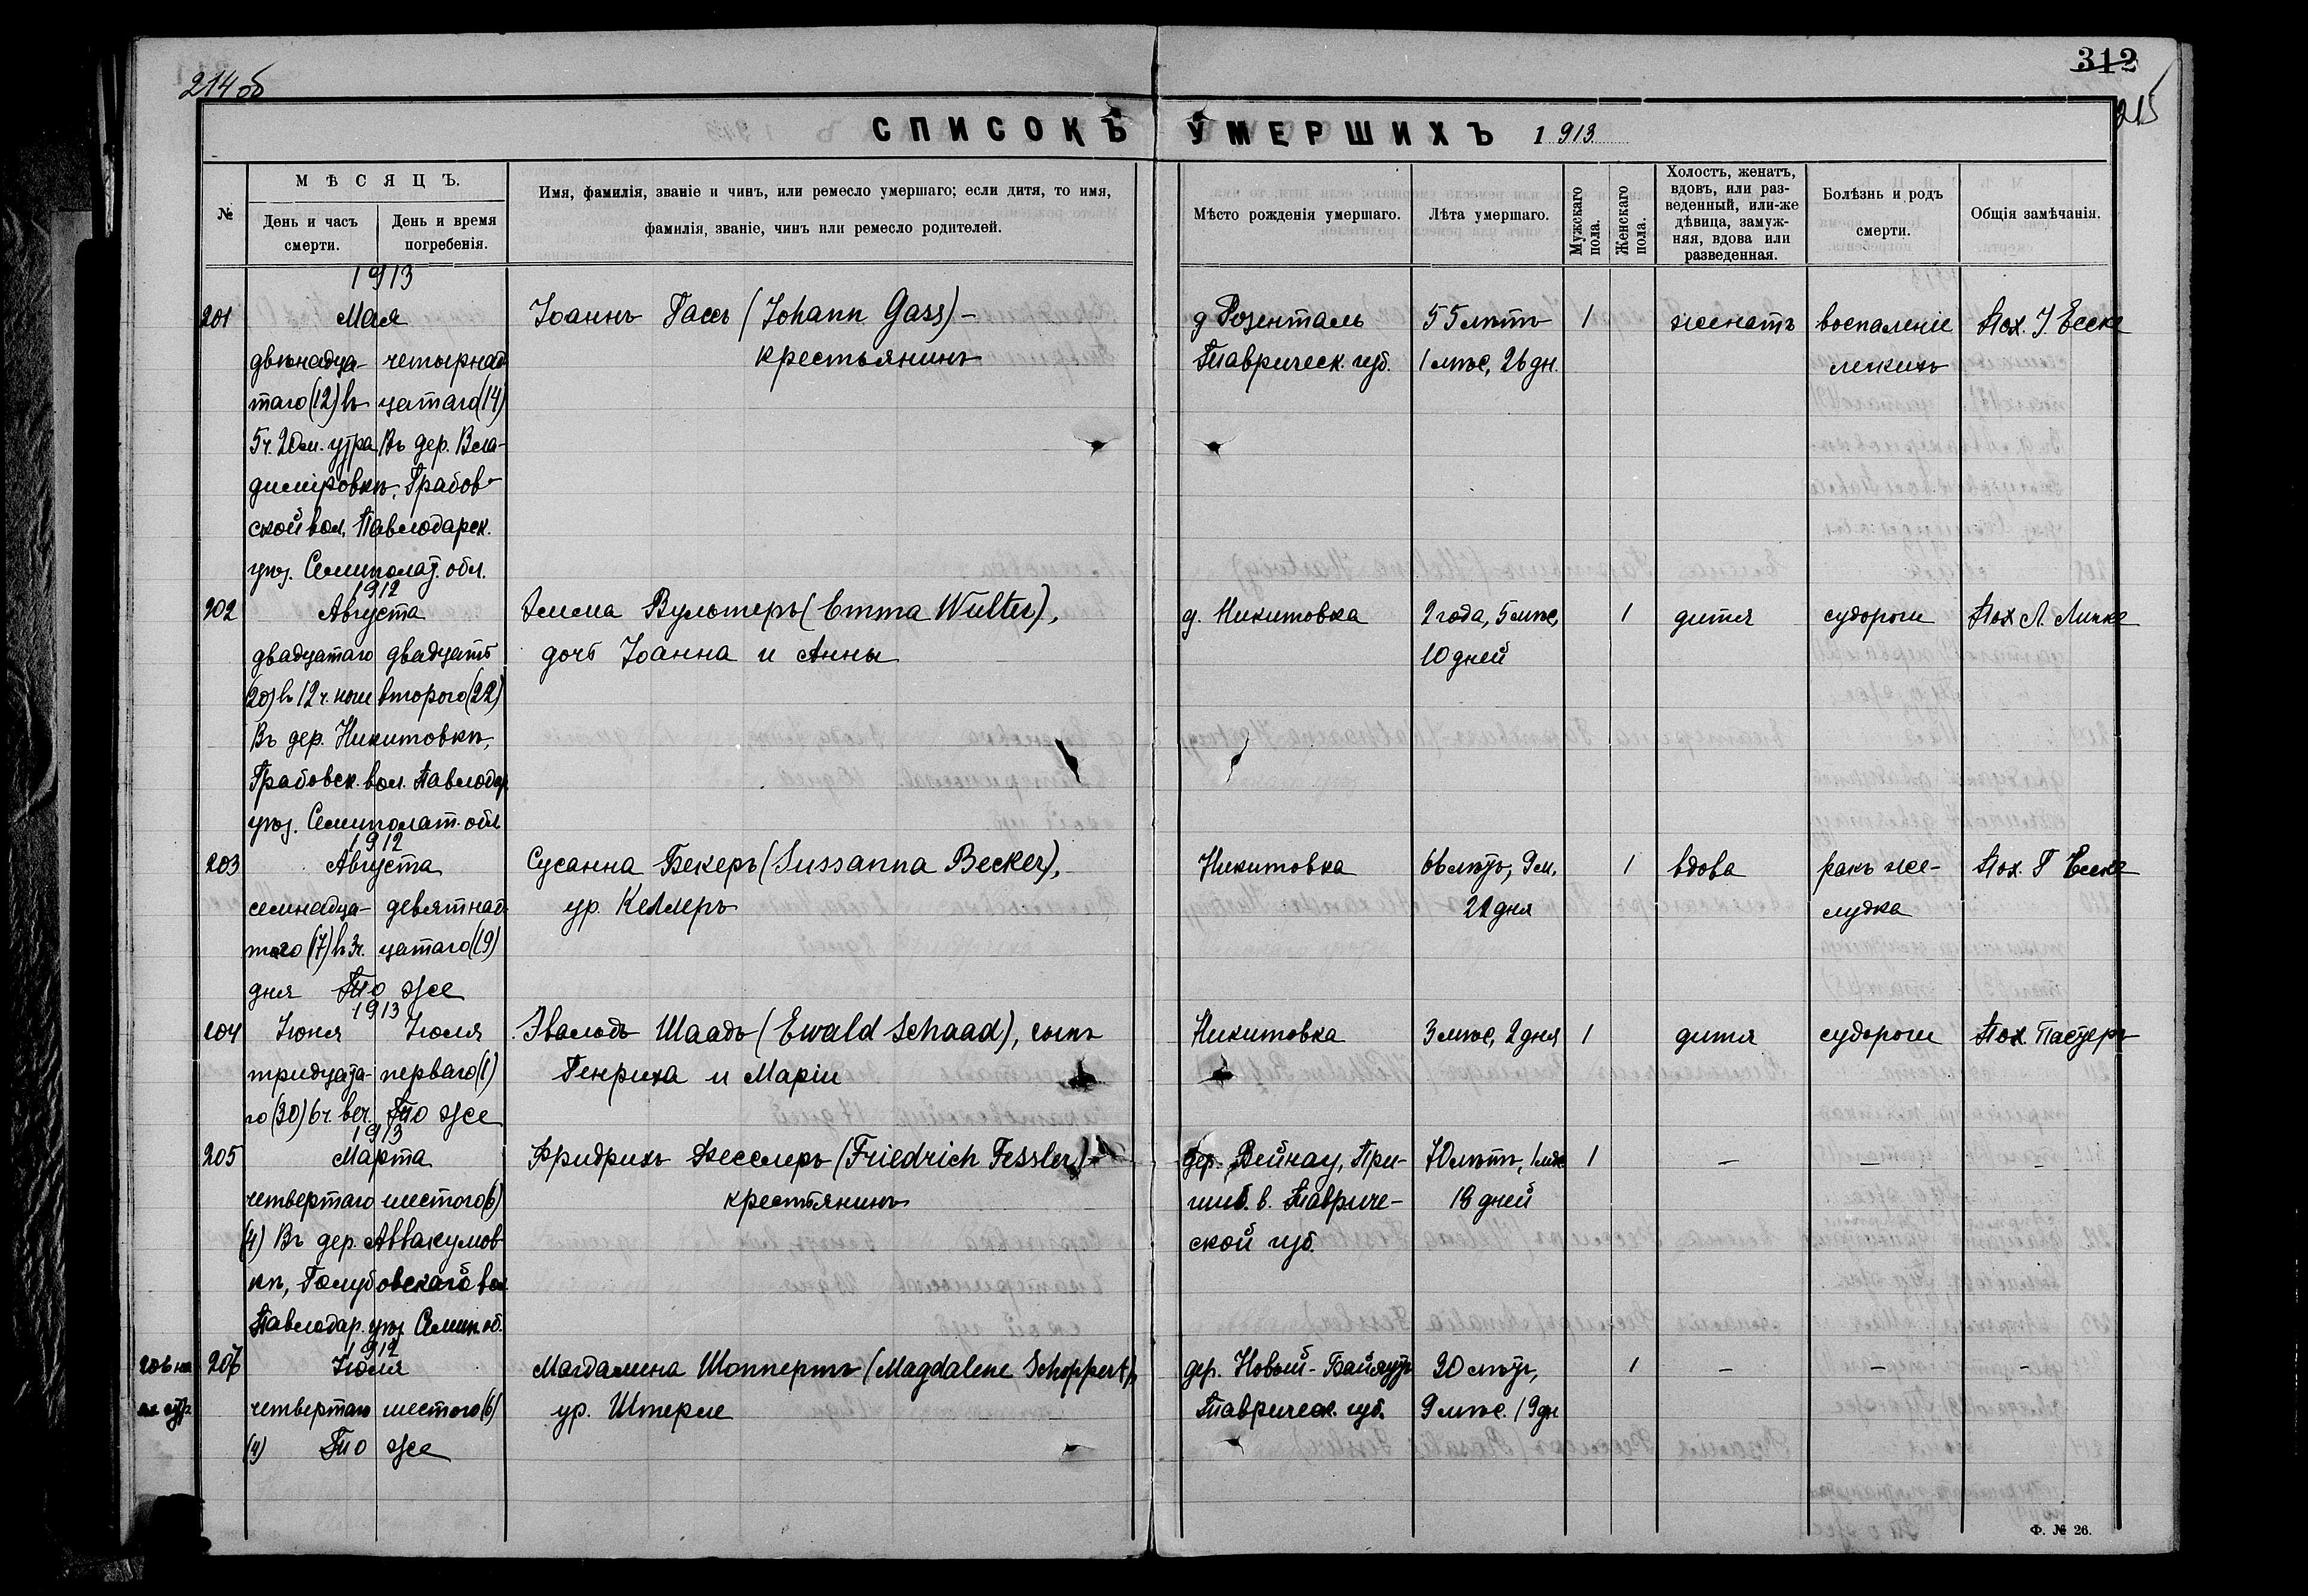 214 об
312
215
СПИСОКЪ УМЕРШИХЪ 1913
№
МѢСЯЦЪ.
День и часъ смерти.
День и время погребенія.
Имя, фамилія, званіе и чинъ, или ремесло умершаго; если дитя, то имя,
фамилія, званіе, чинъ или ремесло родителей.
Мѣсто рожденія умершаго.
Лѣта умершаго.
Мужскаго пола.
Женскаго пола.
Холостъ, женатъ,
вдовъ, или раз-
веденный, или-же
дѣвица, замуж-
няя, вдова или
разведенная.
Болѣзнь и родъ
смерти.
Общія замѣчанія.
1913
201 Мая Іоаннъ Гассъ (Johann Gass) – д Розенталь 55 лѣтъ 1 женатъ воспаленіе Пох. І. Ееске
двѣнадца- четырнад крестьянинъ Таврическ. губ. 1 мѣс, 26 дн. легкихъ
таго (12) въ цатаго (14)
5 ч. 20 м. утра Въ дер. Вла-
диміровкѣ, Грабов-
ской вол. Павлодарск.
уѣз. Семиполат. обл.
1912
202 Августа Эмма Вультеръ (Emma Wulter), д. Никитовка 2 года, 5 мѣс, 1 дитя судороги Пох Л. Линке
двадцатаго двадцать дочь Іоанна и Анны 10 дней
(20) въ 12 ч. ночи второго (22)
Въ дер. Никитовкѣ,
Грабовск. вол. Павлодар.
уѣз. Семиполат. обл
1912
203 Августа Сусанна Бекеръ (Sussanna Becker), Никитовка 66 лѣтъ, 9 м, 1 вдова ракъ же- Пох. Г Ееске
семнадца- девятнад- ур. Келлеръ 21 дня лудка
таго (17) въ 3 ч. цатаго (19)
дня То же
1913
204 Іюня Іюля Эвальдъ Шаадъ (Ewald Schaad), сынъ Никитовка 3 мѣс, 2 дня 1 дитя судороги Пох. Пасторъ
тридцата- перваго (1) Генриха и Маріи
го (30) 6 ч. веч. То же
1913
205 Марта Фридрихъ Фесслеръ (Friedrich Fessler) – дер. Вейнау, При- 70 лѣтъ, 1 мѣс 1 – – –
четвертаго шестого (6) крестьянинъ шиб. в. Тавриче- 18 дней
(4) Въ дер. Аввакумов ской губ.
кѣ, Голубовской вол.
Павлодар. уѣз Семип об.
1912
206 Іюля Магдалина Шоппертъ (Magdalene Schoppert), дер. Новый-Байяутъ 20 лѣтъ, 1 – – –
четвертаго шестого (6) ур. Штерле Таврическ. губ. 9 мѣс. 19 дн
(4) То же
Ф. № 26.